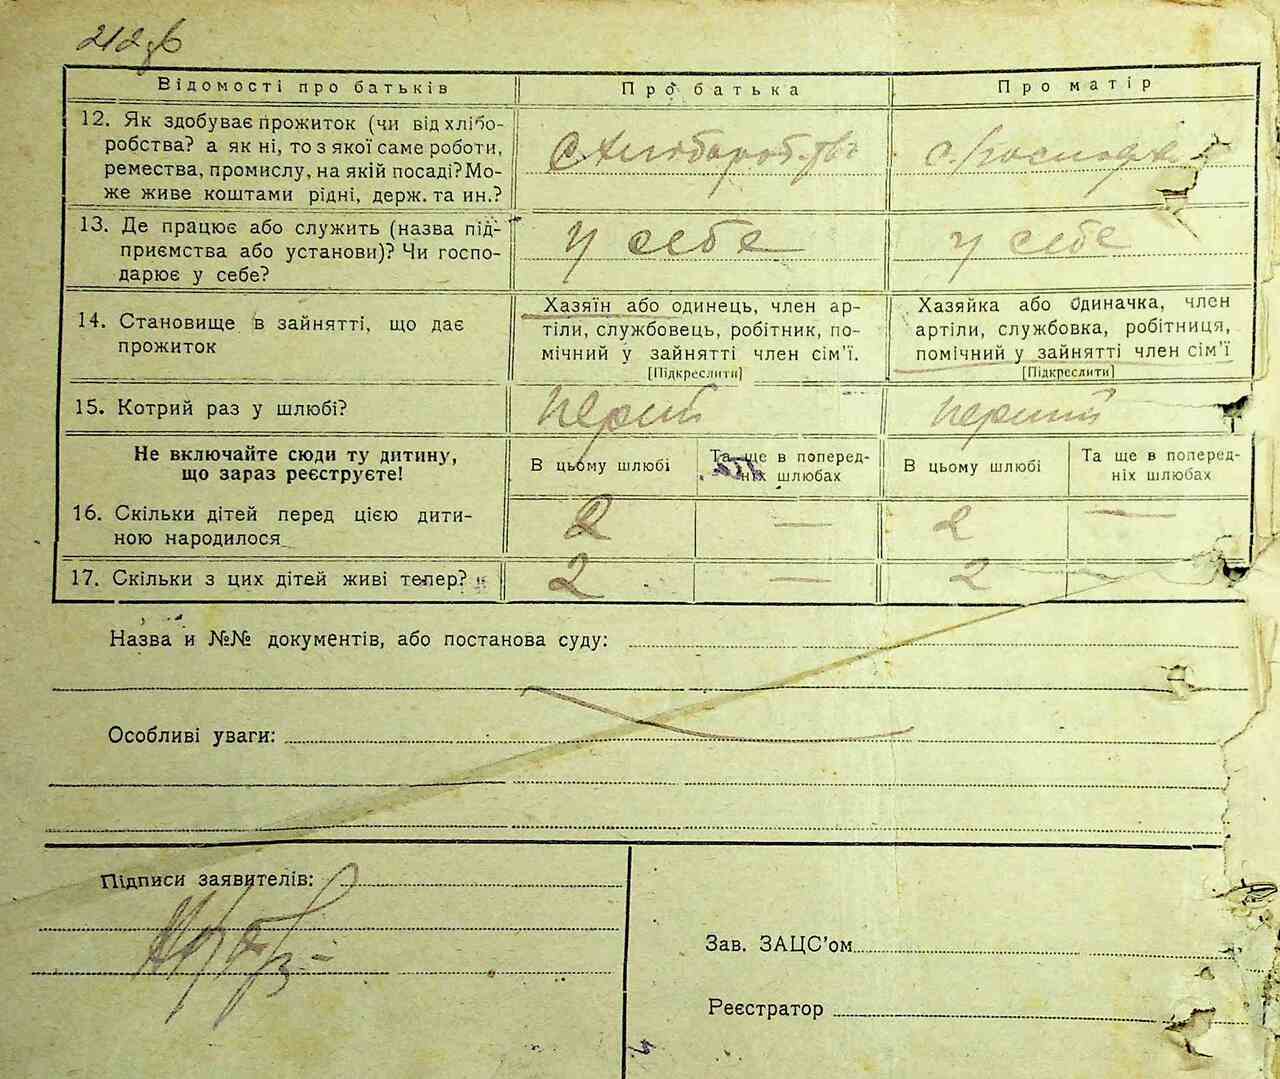 212зв
Відомості про батьків
Про батька
Про матір
12. Як здобуває прожиток (чи від хлібо-
робства? а як ні, то з якої саме роботи,
ремества, промислу, на якій посаді? Мо-
же живе коштами рідні, держ. та ин.?
с. Господ.
13. Де працює або служить (назва під-
приємства або установи)? Чи госпо-
дарює у себе?
у себе
у себе
14. Становище в зайнятті, що дає
прожиток
Хазяїн або одинець, член ар-
тіли, службовець, робітник, по-
мічний у зайнятті член сім'ї.
[Підкреслити]
Хазяйка або одиначка, член
артіли, службовка, робітниця,
помічний у зайнятті член сім'ї
[Підкреслити]
15. Котрий раз у шлюбі?
перший
перший
Не включайте сюди ту дитину,
що зараз реєструєте!
В цьому шлюбі
Та ще в поперед-
ніх шлюбах
В цьому шлюбі
Та ще в поперед-
ніх шлюбах
16. Скільки дітей перед цією дити-
ною народилося
2
—
2
—
17. Скільки з цих дітей живі тепер?
2
—
2
Назва и №№ документів, або постанова суду:
Особливі уваги:
Підписи заявителів:
Зав. ЗАЦС'ом
Реєстратор